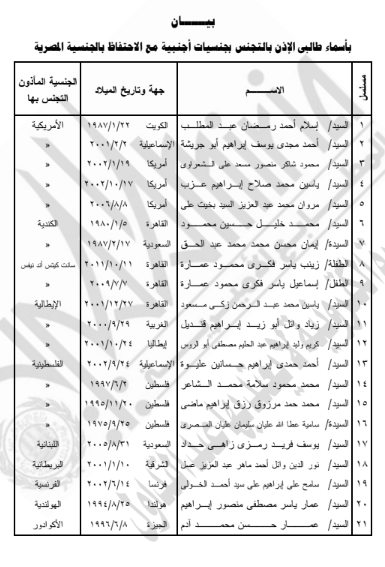 بيـــــان
بأسماء طالبى الإذن بالتجنس بجنسيات أجنبية مع الاحتفاظ بالجنسية المصرية
مسلسل الاســـــم جهة وتاريخ الميلاد الجنسية المأذون التجنس بها
١ السيد/ إسلام أحمد رمضان عبد المطلب الكويت ١٩٨٧/١/٢٢ الأمريكية
٢ السيد/ أحمد مجدى يوسف إبراهيم أبو جريشة الإسماعيلية ٢٠٠١/٢/٢ »
٣ السيد/ محمود شاكر منصور مسعد على الشعراوى أمريكا ٢٠٠٢/١/١٩ »
٤ السيد/ ياسين محمد صلاح إبراهيم عزب أمريكا ٢٠٠٢/١٠/١٧ »
٥ السيد/ مروان محمد عبد العزيز السيد بخيت على أمريكا ٢٠٠٦/٨/٨ »
٦ السيد/ محمد خليل حسين محمود القاهرة ١٩٨٠/١/٥ الكندية
٧ السيدة/ إيمان محسن محمد محمد عبد الحق السعودية ١٩٨٧/٢/١٧ »
٨ الطفلة/ زينب ياسر فكرى محمود عمارة القاهرة ٢٠١١/١٠/١١ سانت كيتس أند نيفس
٩ الطفل/ إسماعيل ياسر فكرى محمود عمارة القاهرة ٢٠٠٩/٧/٧ »
١٠ السيد/ ياسين محمد عبد الرحمن زكى مسعود القاهرة ٢٠٠١/١٢/٢٧ الإيطالية
١١ السيد/ زياد وائل أبو زيد إبراهيم قنديل الغربية ٢٠٠٠/٩/٢٩ »
١٢ السيد/ كريم وليد إبراهيم عبد الحليم مصطفى أبو الروس إيطاليا ٢٠٠١/١٠/٢٤ »
١٣ السيد/ أحمد حمدى إبراهيم حسانين عليوة الإسماعيلية ٢٠٠٢/٩/٢٤ الفلسطينية
١٤ السيد/ محمد محمود سلامة محمد الشاعر فلسطين ١٩٩٧/٦/٢ »
١٥ السيد/ محمد حمد مرزوق رزق إبراهيم ماضى فلسطين ١٩٩٥/١١/٢٠ »
١٦ السيدة/ سامية عطا الله عليان سليمان عليان المصرى فلسطين ١٩٧٥/٩/٢٥ »
١٧ السيد/ يوسف فريد رمزى زاهى حداد السعودية ٢٠٠٥/٨/٣١ اللبنانية
١٨ السيد/ نور الدين وائل أحمد ماهر عبد العزيز عسل الشرقية ٢٠٠١/١/١٠ البريطانية
١٩ السيد/ سامح على إبراهيم على سيد أحمد الخولى فرنسا ٢٠٠٢/٦/١٤ الفرنسية
٢٠ السيد/ عمار ياسر مصطفى منصور إبراهيم هولندا ١٩٩٤/٨/٢٥ الهولندية
٢١ السيد/ عمار حسن محمد آدم الجيزة ١٩٩٦/٦/٨ الأكوادور